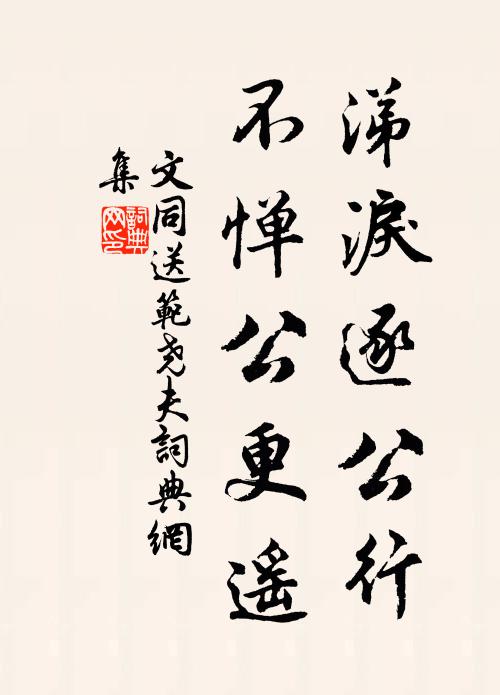 涕淚逐公行
不惮公更遥
文同送範堯夫詞典網
集
詞典网印